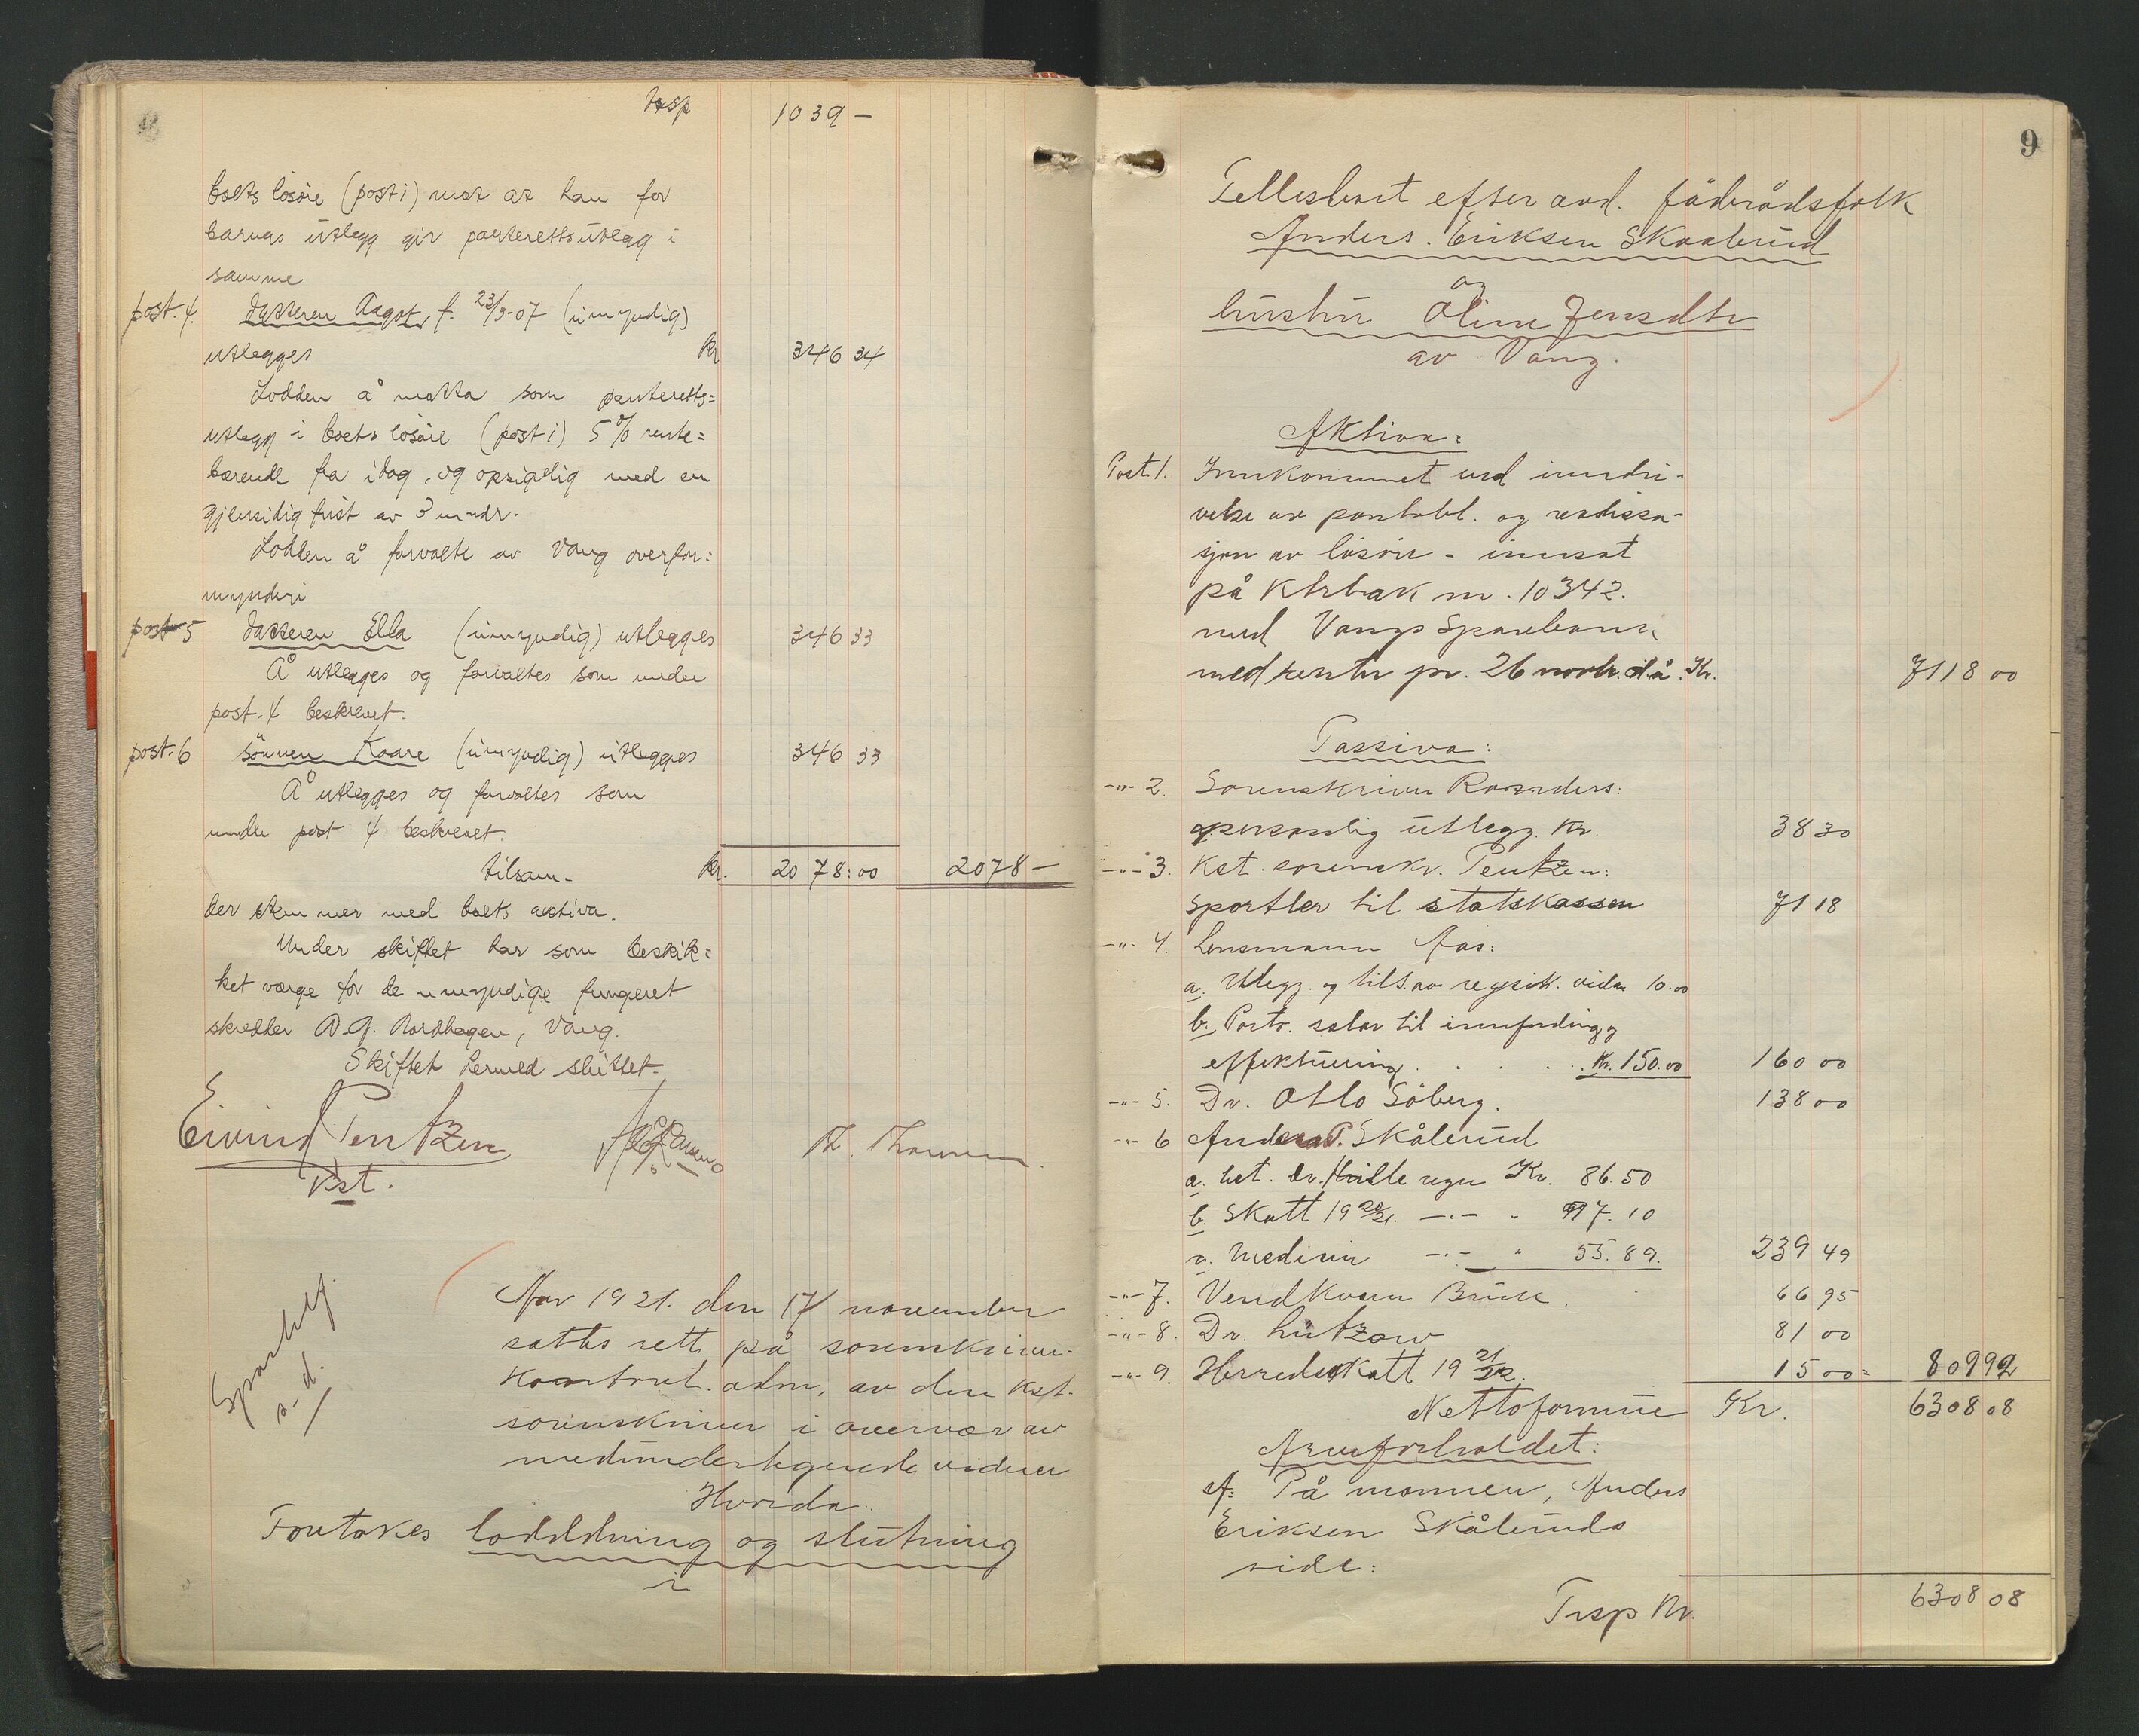 trsp 1039 –
boets lösöre (post 1) mot at han for
barnas utlegg gir panterettsutlegg i
samme
post. 4. datteren Aagot, f. 23/9-07 (umyndig)
utlegges Kr 346 34
Lodden å motta som panteretts=
utlegg i boets lösöre (post 1) 5% rente=
bærende fra idag, og opsigelig med en
gjensidig frist av 3 mndr.
Lodden å forvalte av Vang overfor=
mynderi
post 5 datteren Ella (umyndig) utlegges 346 33
Å utlegges og forvaltes som under
post. 4 beskrevet.
post. 6 sönnen Kaare (umyndig) utlegges 346 33
Å utlegges og forvaltes som
under post 4 beskrevet.
tilsam. kr. 2078:00 2078 –
der stemmer med boets activa.
Under skiftet har som beskik=
ket værge for de umyndige fungeret
skredder A. G. Nordhagen, Vang.
Skiftet hermed sluttet.
Eivind Pentzen
kst.
Th.
Aar 1921. den 17 november
sattes rett på sorenskriver-
kontoret. adm. av den kst.
sorenskriver i overvær av
medundertegnede vidner
Hvorda
Foretokes loddeldning og slutning
i
9
Fellesboet efter avd. föderådsfolk
Anders. Eriksen Skaalerud
og
hustru Oline Jensdtr
av Vang.
Aktiva:
Post 1. Innkommet ved inndri-
velse av pantobl. og realisa-
sjon av lösöre - innsat
på Khrbak nr. 10342.
med Vangs Sparebank
med renter pr. 26 novbr. d.å. Kr. 7118 00
Passiva:
-"- 2. Sorenskriver Raanders:
personlig utlegg. Kr. 38 30
-"- 3. Kst. sorenskr. Pentzen:
sportler til statskassen 71 18
-"- 4. Lensmann Aas:
a. Utlegg. og tils. av regsik. vidn 10.00
b. Porto. salær til innfordring og
effektuering . . . . . Kr. 150.00 160 00
-"- 5. Dr. Otto Söberg. 138 00
-"- 6 Anders P. Skålerud
a. bet. dr. Hville regn Kr. 86.50
b. Skatt 19 20/21. -"- " 97.10
c. Medisin -"- " 55.89. 239 49
-"- 7. Vendkvern Bruk. 66 95
-"- 8. Dr. Lützow 81 00
-"- 9. Herredsskatt 19 21/22. 15 00= 809 92
Nettoformue Kr. 6308 08
Arveforholdet:
A: På mannen, Anders
Eriksen Skåleruds
side:
Trsp Kr. 6308 08